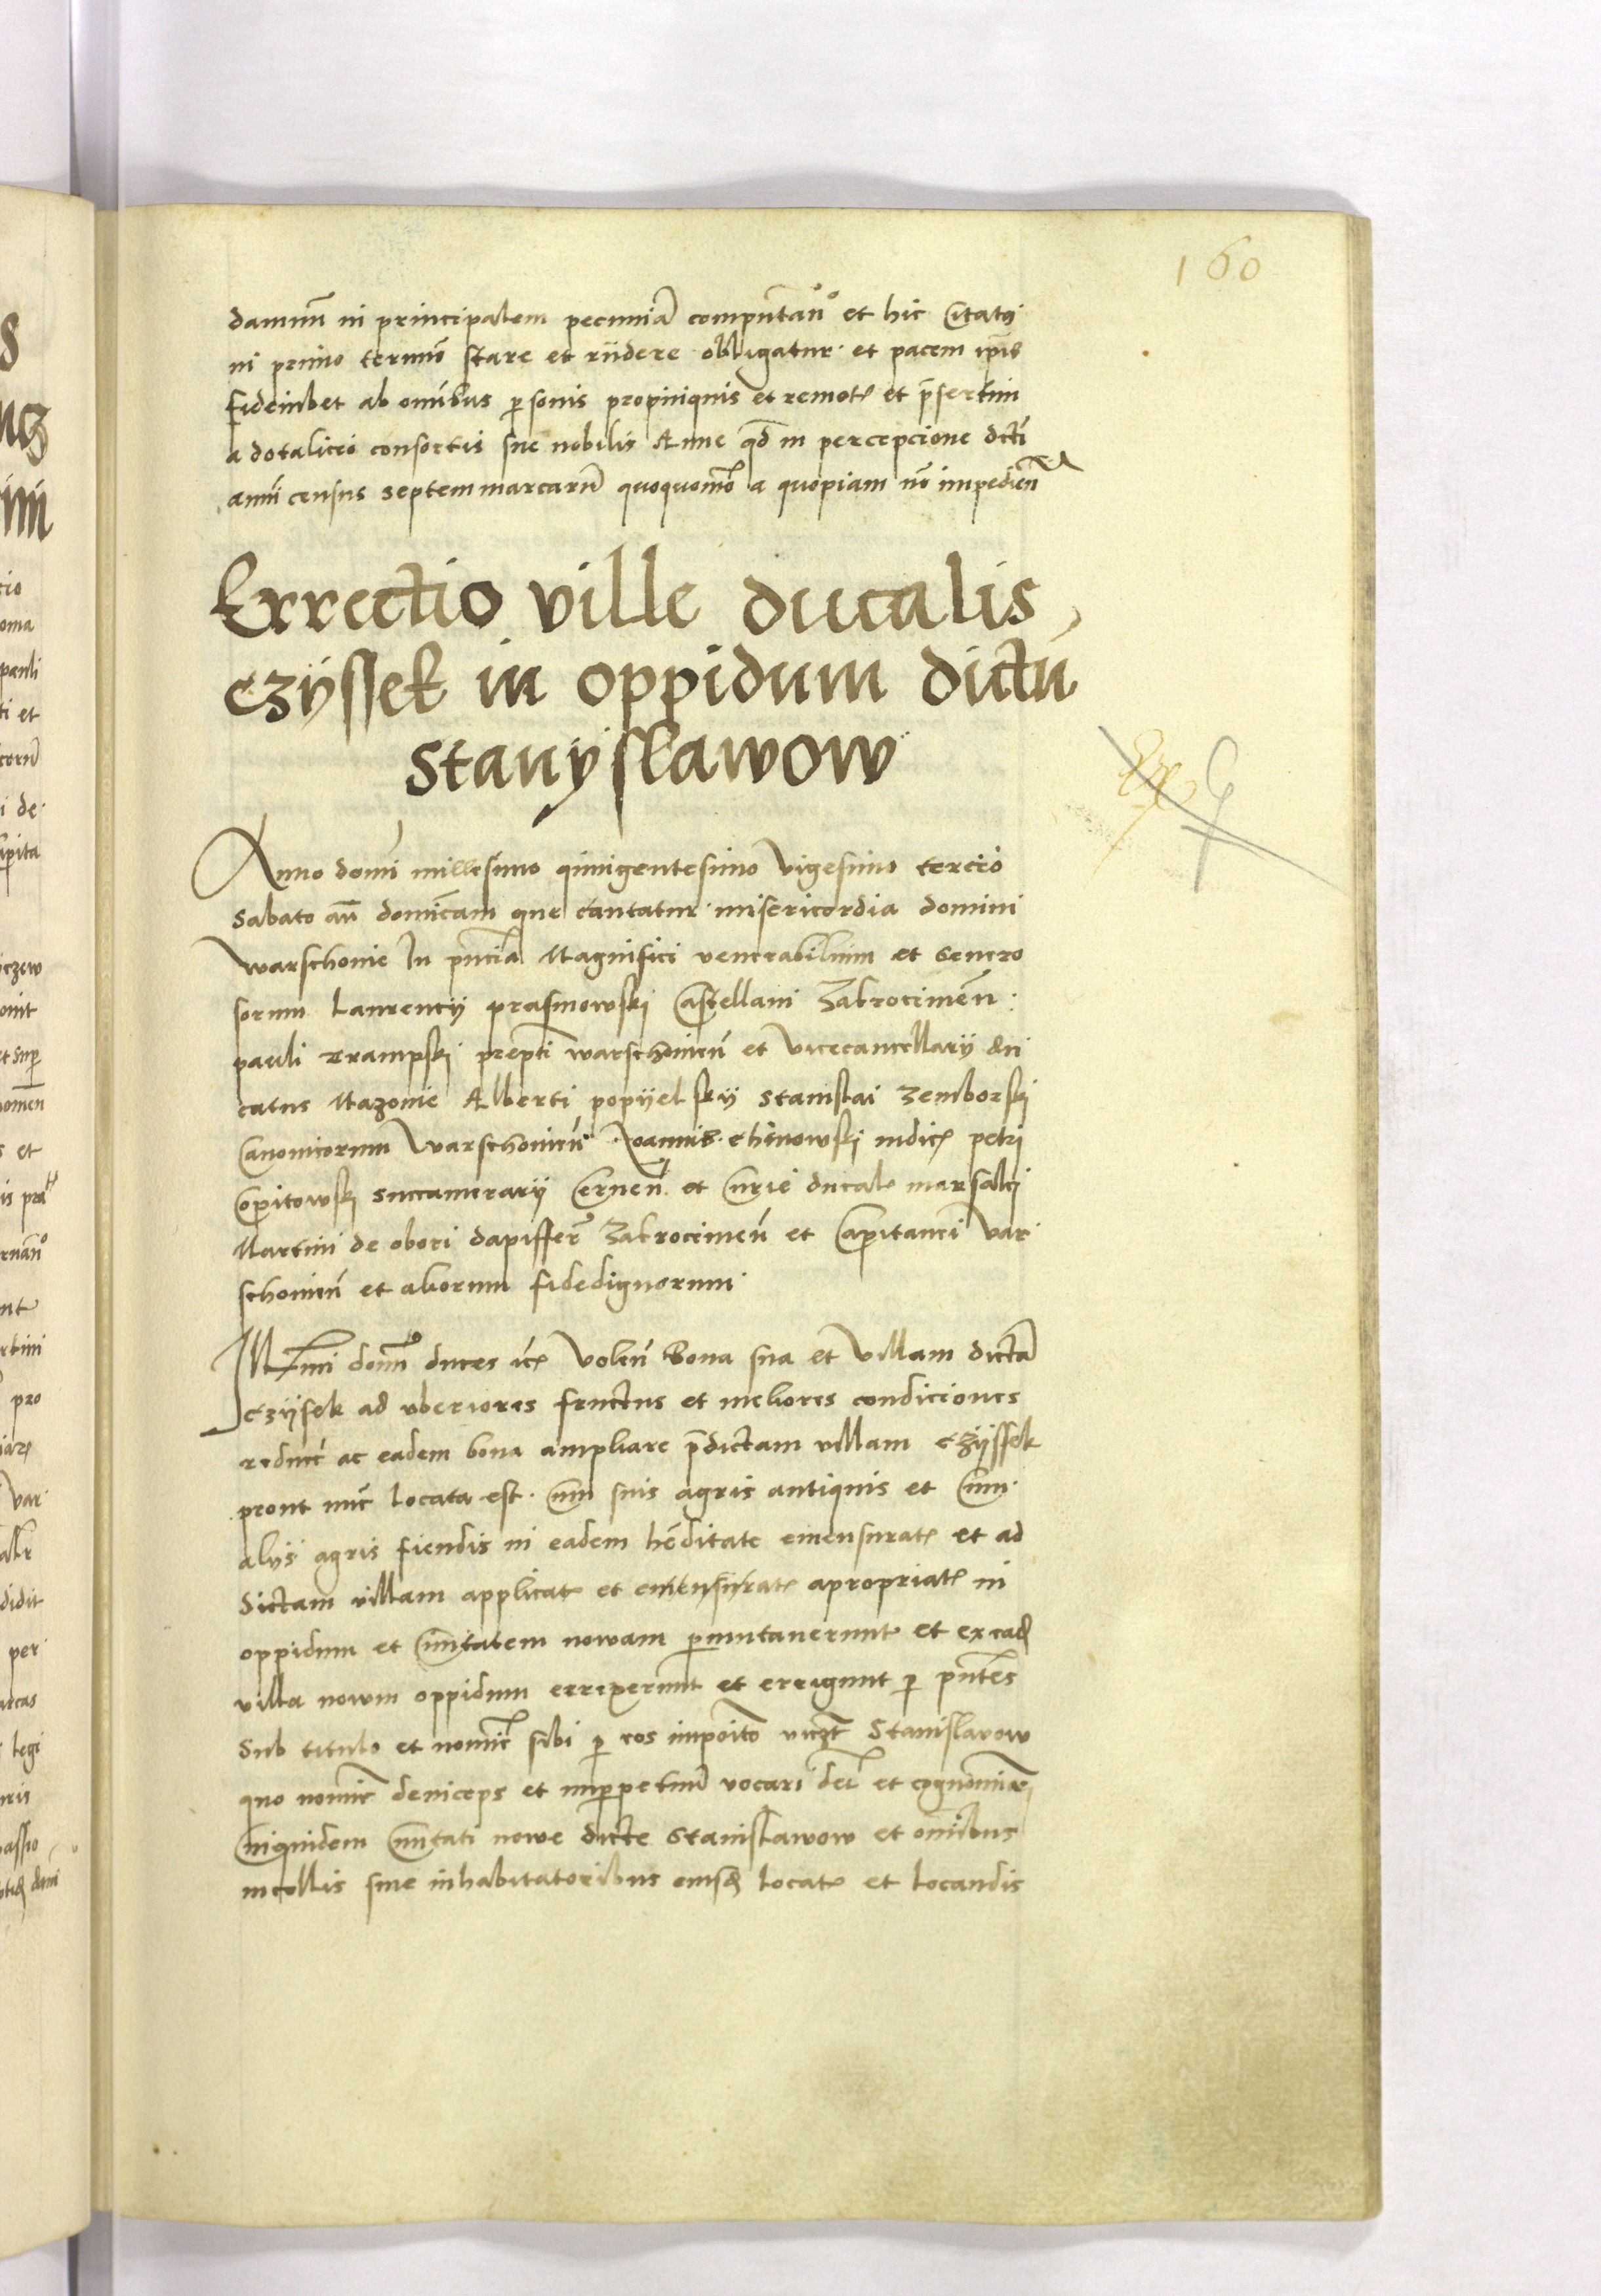 160
damnū in principalem pecuniā computañ° et hic Citatꝯ
in primo termīo stare et rñdere obligatur et pacem ip̄is
fideiubet ab om̄ibus personis propinquis et remotꝭ et p̄sertim
a dotalicio consortis sue nobilis Anne qđ in percepcione dc̄ti
anni census septem marcarū quoquomō a quopiam nō impedieñ
Errectio ville ducalis
Czÿssek in oppidum dictū
Stanyslawow
Anno domī millesimo quingentesimo vigesimo tercio
Sabato añ domīcam que cantatur misericordia domini
Warschouie In p̄ncia Magnifici venerabilium et Genero
sorum Laurencij prasmowski Castellani Zakrocimeñ
pauli prep̄ti warschouieñ et vicecancellarij du
catus Mazouie Alberti popÿelskÿ Stanislai Zemborski
Canonicorum Warschouieñ Joannis iudicꝭ petri
Copitowski succamerarij Cerneñ et Curie ducalꝭ marsalci
Martini de obori dapifferi Zakrocimeñ et Capitanei Var
schouieñ et aliorum fidedignorum
Ill̄mi domī duces ꝛcꝭ Voleñ Bona sua et Villam dictā
Czÿsek ad vberiores fructus et meliores condiciones
reducē ac eadem bona ampliare p̄dictam villam Czÿssek
prout nūc locata est cum suis agris antiquis et cum
alijs agris fiendis in eadem hēditate emensuratꝭ et ad
dictam villam applicatꝭ et emensuratꝭ apropriatꝭ in
oppidum et Ciuitatem nowam permutauerunt et ex eadē
villa nowm oppidum errexerunt et errigunt per p̄ntes
Sub titulo et nomīe sibi per eos impoīto vicȝt Stanislawow
quo nomīe deinceps et imperpetuū vocari det̄ et cognominari
Cuiquidem Ciuitati nowe dicte Stanislawow et om̄ibus
incollis siue inhabitatoribus eiusdē locatꝭ et locandis